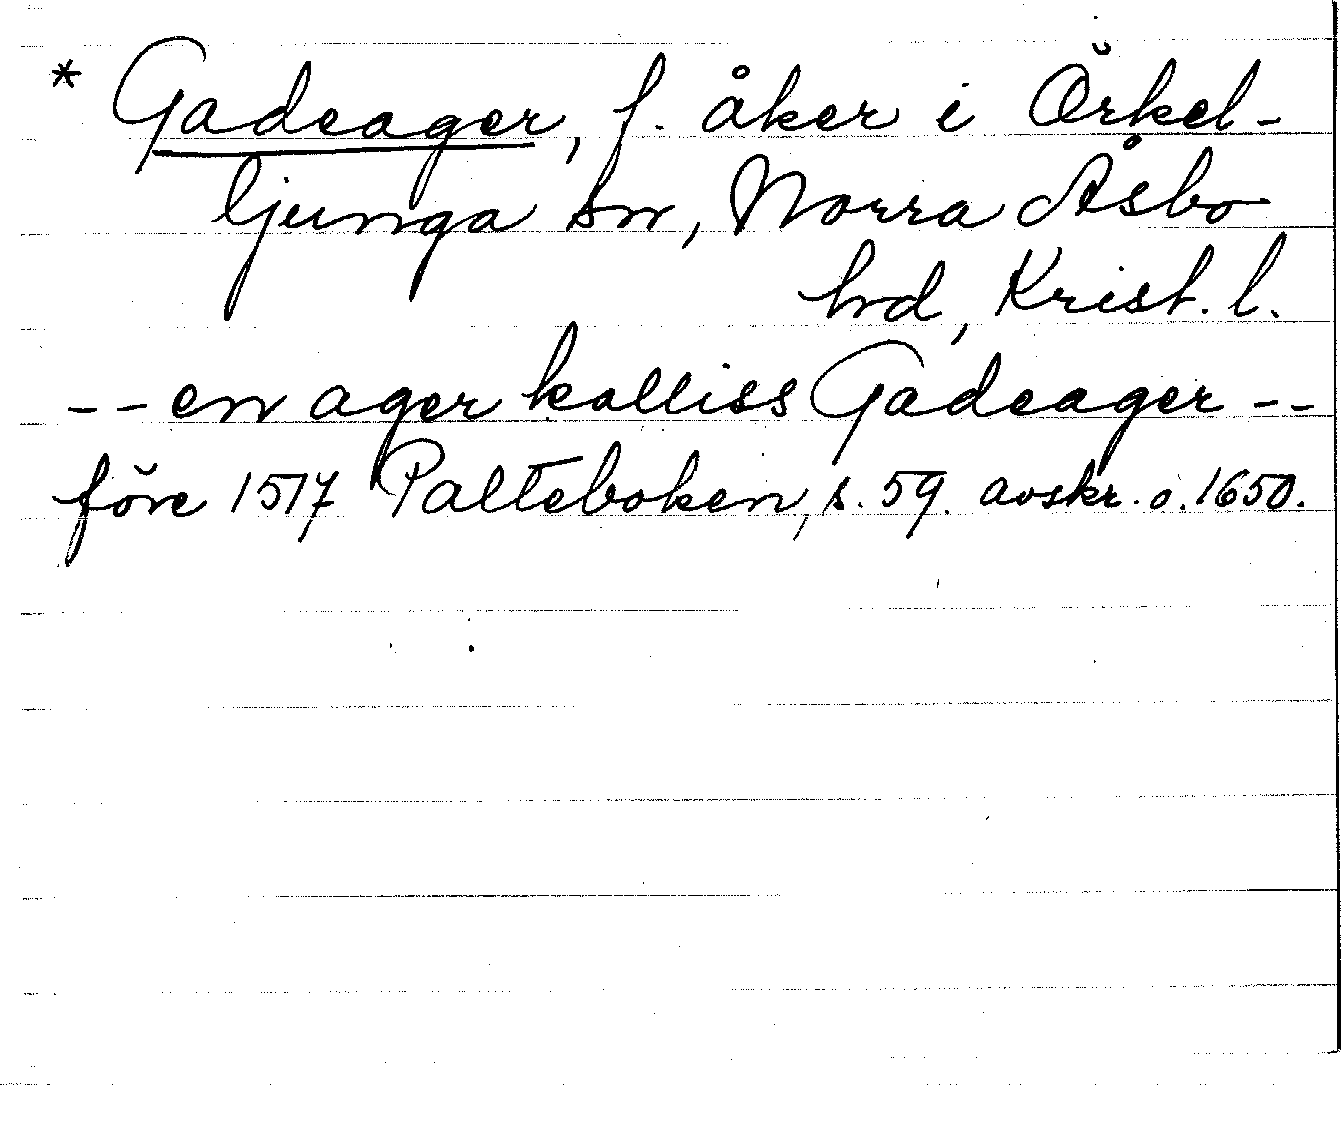 * Gadeager, f. åker i Örkel-
ljunga sn, Norra Åsbo
hd, Krist. l.
-- en ager kalliss Gadeager --
före 1517 Palteboken, s. 59. avskr. o. 1650.